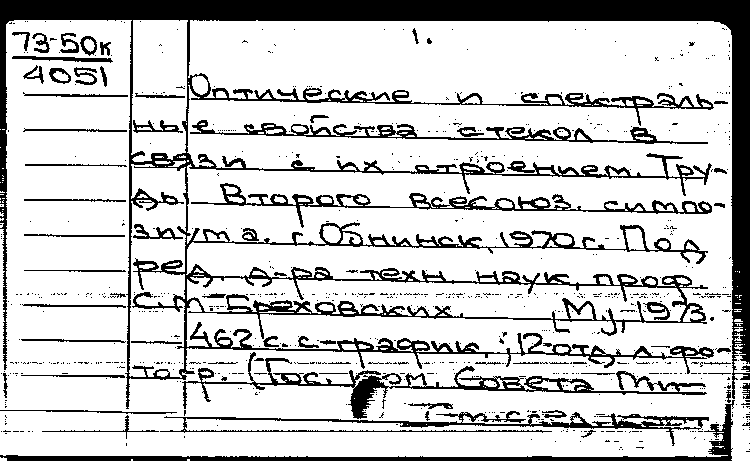 1.
73-50к
4051
Оптические и спектраль-
ные свойства стекол в
связи с их строением. Тру-
ды Второго всесоюз. симпо-
зиума. г. Обнинск, 1970г. Под
ред. д-ра техн. наук, проф.
С.М. Бреховских. [М.], 1973.
462 с. с график.; 12 отд. л. фо-
тогр. (Гос. ком. Совета Ми-
См. след. карт.